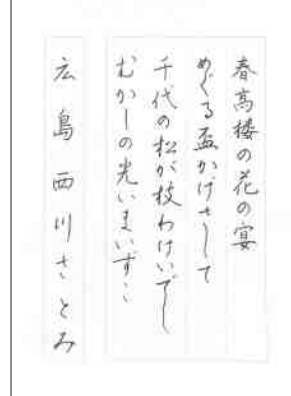 春高楼の花の宴
めぐる盃かげさして
千代の松が枝わけいでし
むかしの光いまいずこ
広島西川さとみ